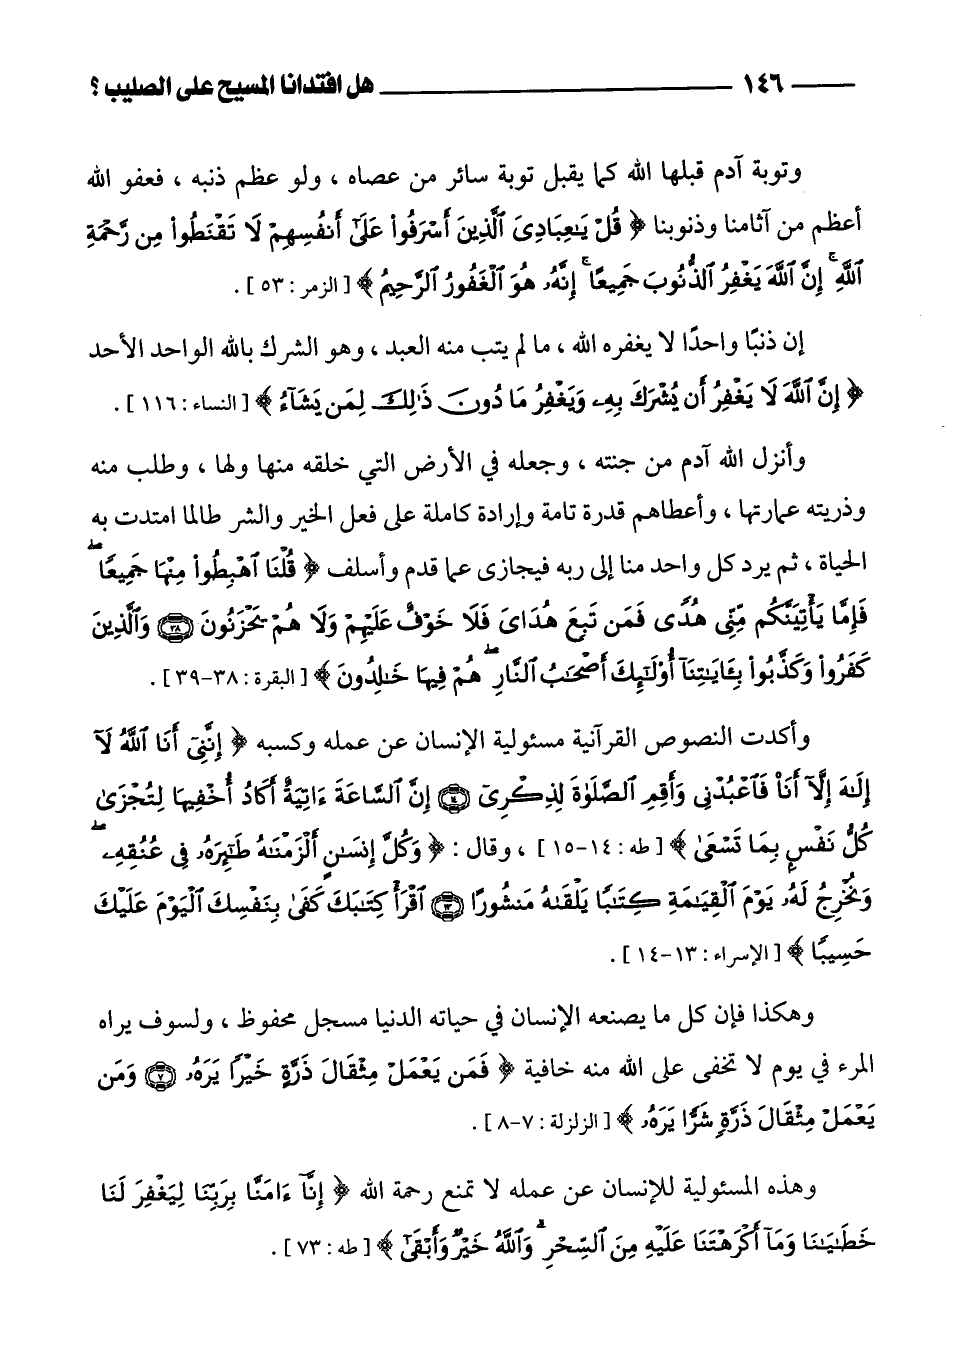 ١٤٦ هل افتدانا المسيح على الصليب ؟
وتوبة آدم قبلها الله كما يقبل توبة سائر من عصاه ، ولو عظم ذنبه ، فعفو الله
أعظم من آثامنا وذنوبنا ﴿ قُلْ يَٰعِبَادِىَ ٱلَّذِينَ أَسْرَفُوا۟ عَلَىٰٓ أَنفُسِهِمْ لَا تَقْنَطُوا۟ مِن رَّحْمَةِ
ٱللَّهِ ۚ إِنَّ ٱللَّهَ يَغْفِرُ ٱلذُّنُوبَ جَمِيعًا ۚ إِنَّهُۥ هُوَ ٱلْغَفُورُ ٱلرَّحِيمُ ﴾ [ الزمر : ٥٣ ] .
إن ذنبًا واحدًا لا يغفره الله ، ما لم يتب منه العبد ، وهو الشرك بالله الواحد الأحد
﴿ إِنَّ ٱللَّهَ لَا يَغْفِرُ أَن يُشْرَكَ بِهِۦ وَيَغْفِرُ مَا دُونَ ذَٰلِكَ لِمَن يَشَآءُ ﴾ [ النساء : ١١٦ ] .
وأنزل الله آدم من جنته ، وجعله في الأرض التي خلقه منها ولها ، وطلب منه
وذريته عمارتها ، وأعطاهم قدرة تامة وإرادة كاملة على فعل الخير والشر طالما امتدت به
الحياة ، ثم يرد كل واحد منا إلى ربه فيجازى عما قدم وأسلف ﴿ قُلْنَا ٱهْبِطُوا۟ مِنْهَا جَمِيعًا ۖ
فَإِمَّا يَأْتِيَنَّكُم مِّنِّى هُدًى فَمَن تَبِعَ هُدَاىَ فَلَا خَوْفٌ عَلَيْهِمْ وَلَا هُمْ يَحْزَنُونَ ٣٨ وَٱلَّذِينَ
كَفَرُوا۟ وَكَذَّبُوا۟ بِـَٔايَٰتِنَآ أُو۟لَٰٓئِكَ أَصْحَٰبُ ٱلنَّارِ ۖ هُمْ فِيهَا خَٰلِدُونَ ﴾ [ البقرة : ٣٨-٣٩ ] .
وأكدت النصوص القرآنية مسئولية الإنسان عن عمله وكسبه ﴿ إِنَّنِىٓ أَنَا ٱللَّهُ لَآ
إِلَٰهَ إِلَّآ أَنَا۠ فَٱعْبُدْنِى وَأَقِمِ ٱلصَّلَوٰةَ لِذِكْرِىٓ ١٤ إِنَّ ٱلسَّاعَةَ ءَاتِيَةٌ أَكَادُ أُخْفِيهَا لِتُجْزَىٰ
كُلُّ نَفْسٍۭ بِمَا تَسْعَىٰ ﴾ [ طه : ١٤-١٥ ] ، وقال : ﴿ وَكُلَّ إِنسَٰنٍ أَلْزَمْنَٰهُ طَٰٓئِرَهُۥ فِى عُنُقِهِۦ ۖ
وَنُخْرِجُ لَهُۥ يَوْمَ ٱلْقِيَٰمَةِ كِتَٰبًا يَلْقَىٰهُ مَنشُورًا ١٣ ٱقْرَأْ كِتَٰبَكَ كَفَىٰ بِنَفْسِكَ ٱلْيَوْمَ عَلَيْكَ
حَسِيبًا ﴾ [ الإسراء : ١٣-١٤ ] .
وهكذا فإن كل ما يصنعه الإنسان في حياته الدنيا مسجل محفوظ ، ولسوف يراه
المرء في يوم لا تخفى على الله منه خافية ﴿ فَمَن يَعْمَلْ مِثْقَالَ ذَرَّةٍ خَيْرًا يَرَهُۥ ٧ وَمَن
يَعْمَلْ مِثْقَالَ ذَرَّةٍ شَرًّا يَرَهُۥ ﴾ [ الزلزلة : ٧-٨ ] .
وهذه المسئولية للإنسان عن عمله لا تمنع رحمة الله ﴿ إِنَّآ ءَامَنَّا بِرَبِّنَا لِيَغْفِرَ لَنَا
خَطَٰيَٰنَا وَمَآ أَكْرَهْتَنَا عَلَيْهِ مِنَ ٱلسِّحْرِ ۗ وَٱللَّهُ خَيْرٌ وَأَبْقَىٰٓ ﴾ [ طه : ٧٣ ] .